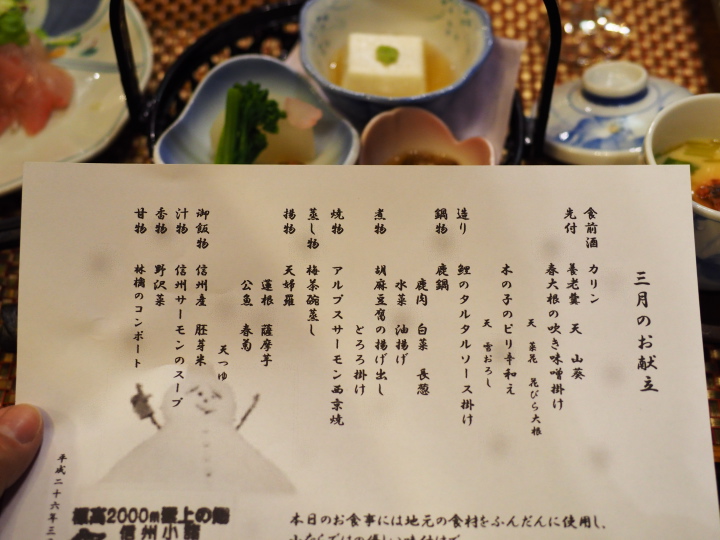 三月のお献立
食前酒 カリン
先付 養老羹 天 山葵
春大根の吹き味噌掛け
天 菜花 花びら大根
木の子のピリ辛和え
天 雪おろし
造り 鯉のタルタルソース掛け
鍋物 鹿鍋
鹿肉 白菜 長葱
水菜 油揚げ
煮物 胡麻豆腐の揚げ出し
とろろ掛け
焼物 アルプスサーモン西京焼
蒸し物 梅茶碗蒸し
揚物 天婦羅
蓮根 薩摩芋
公魚 春菊
天つゆ
御飯物 信州産 胚芽米
汁物 信州サーモンのスープ
香物 野沢菜
甘物 林檎のコンポート
平成二十六年三
本日のお食事には地元の食材をふんだんに使用し、
標高2000m極上の
信州小諸